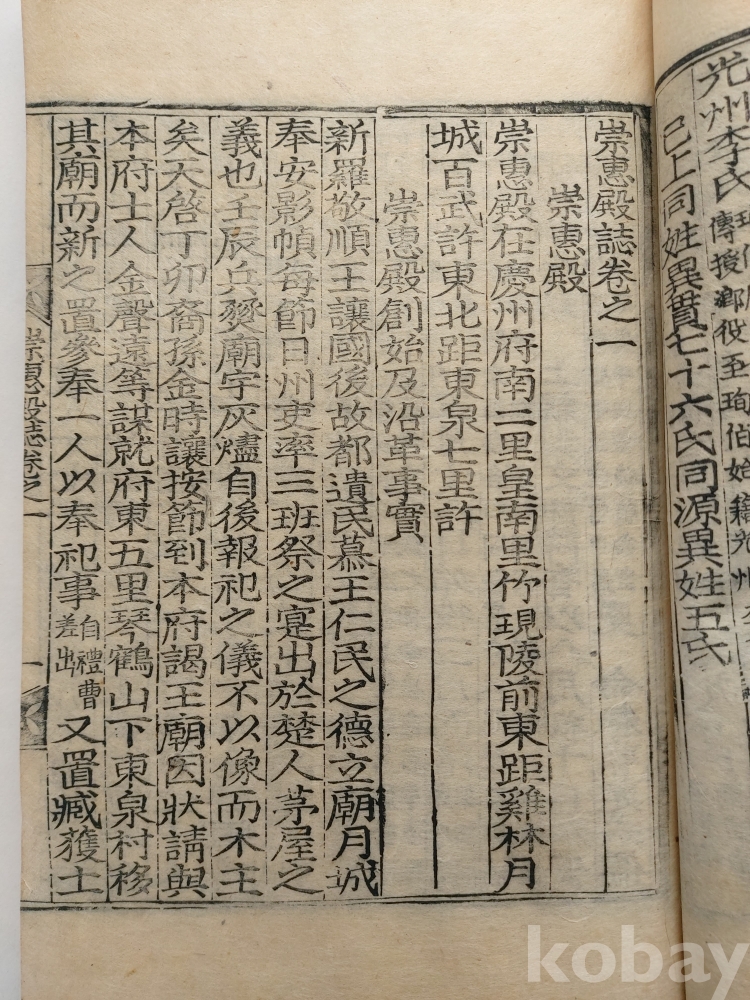 光州李氏
傳授鄕役至珣伯始籍光州
已上同姓異貫七十六氏同源異姓五氏
崇惠殿誌卷之一
崇惠殿
崇惠殿在慶州府南二里皇南里竹現陵前東距雞林月
城百武許東北距東泉七里許
崇惠殿創始及沿革事實
新羅敬順王讓國後故都遺民慕王仁民之德立廟月城
奉安影幀每節日州吏率三班祭之寔出於楚人茅屋之
義也壬辰兵燹廟宇灰燼自後報祀之儀不以像而木主
矣天啓丁卯裔孫金時讓按節到本府謁王廟因狀請與
本府士人金聲遠等謀就府東五里琴鶴山下東泉村移
其廟而新之置參奉一人以奉祀事自禮曹差出又置臧獲土
崇惠殿誌卷之一
一
kobay